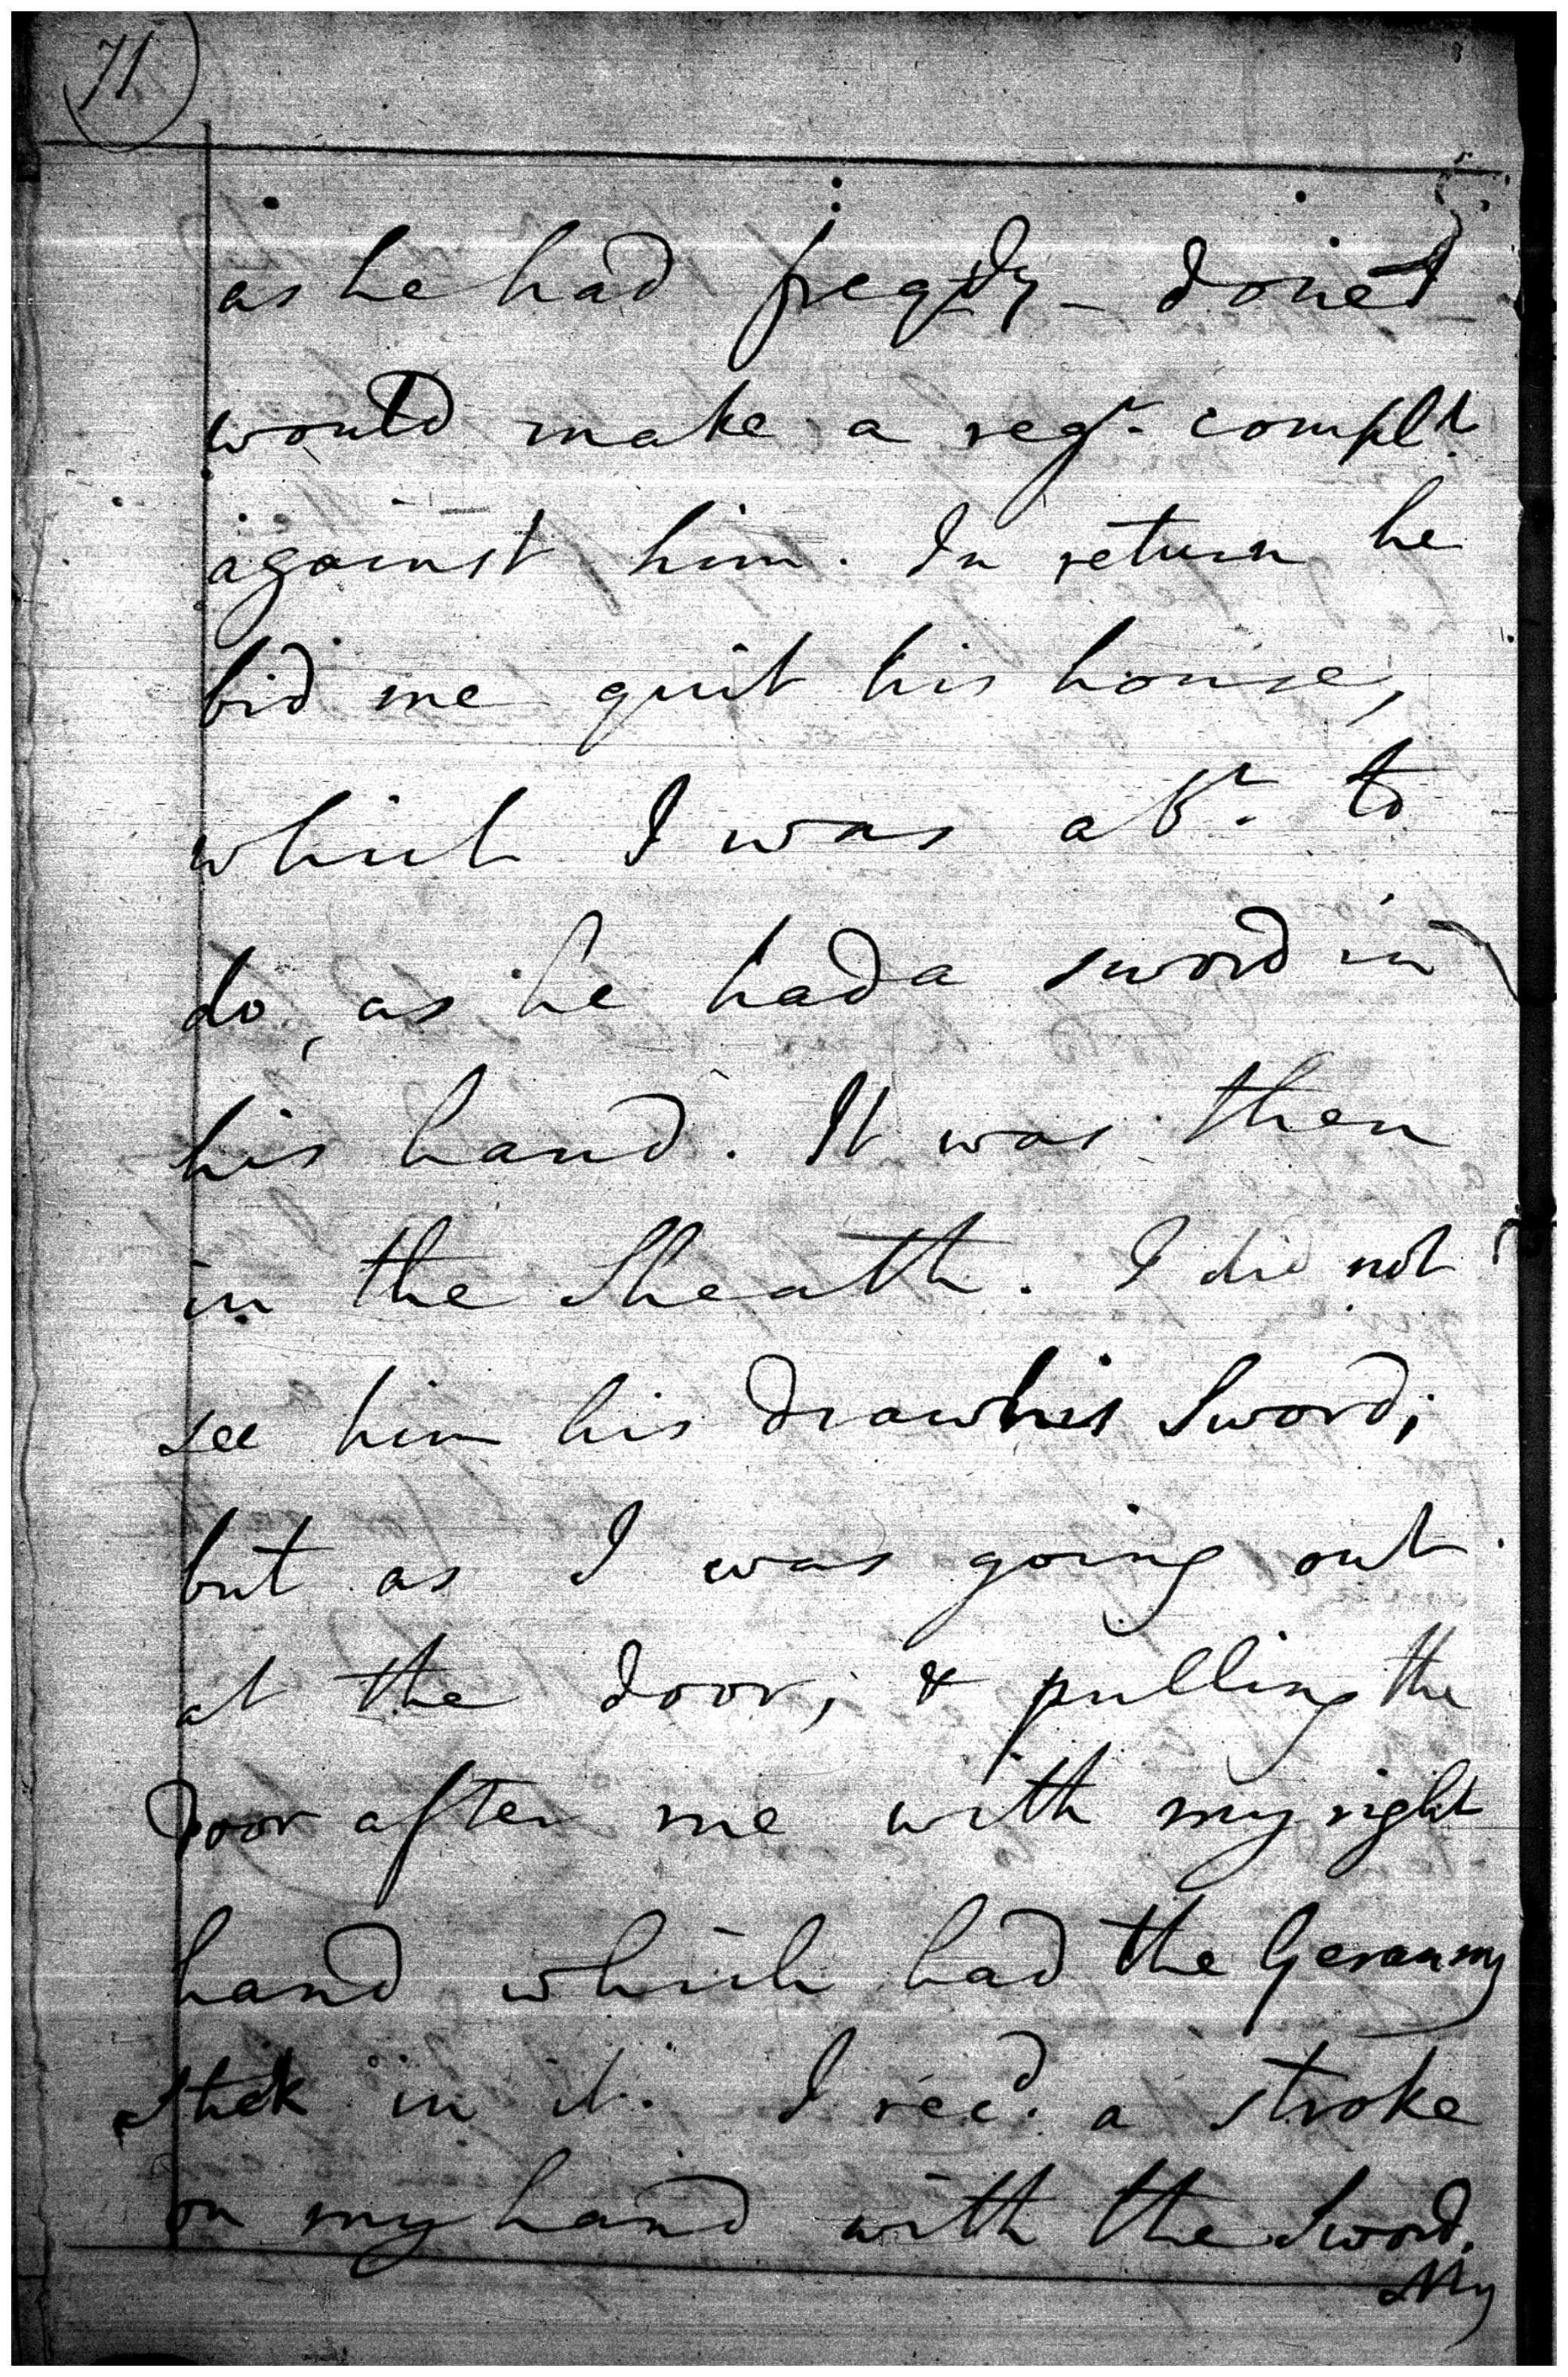 71
as he had freqdy - done I
would make a regr. complt
against him. In return he
bid me quit his house,
which I was abt. to
do, as he had a sword in
his hand. It was then
in the Sheath. I did not
see him his draw his Sword;
but as I was going out
at the door, & pulling the
door after me with my right
hand which had the
stick in it. I recd. a stroke
on my hand with the Sword.
My